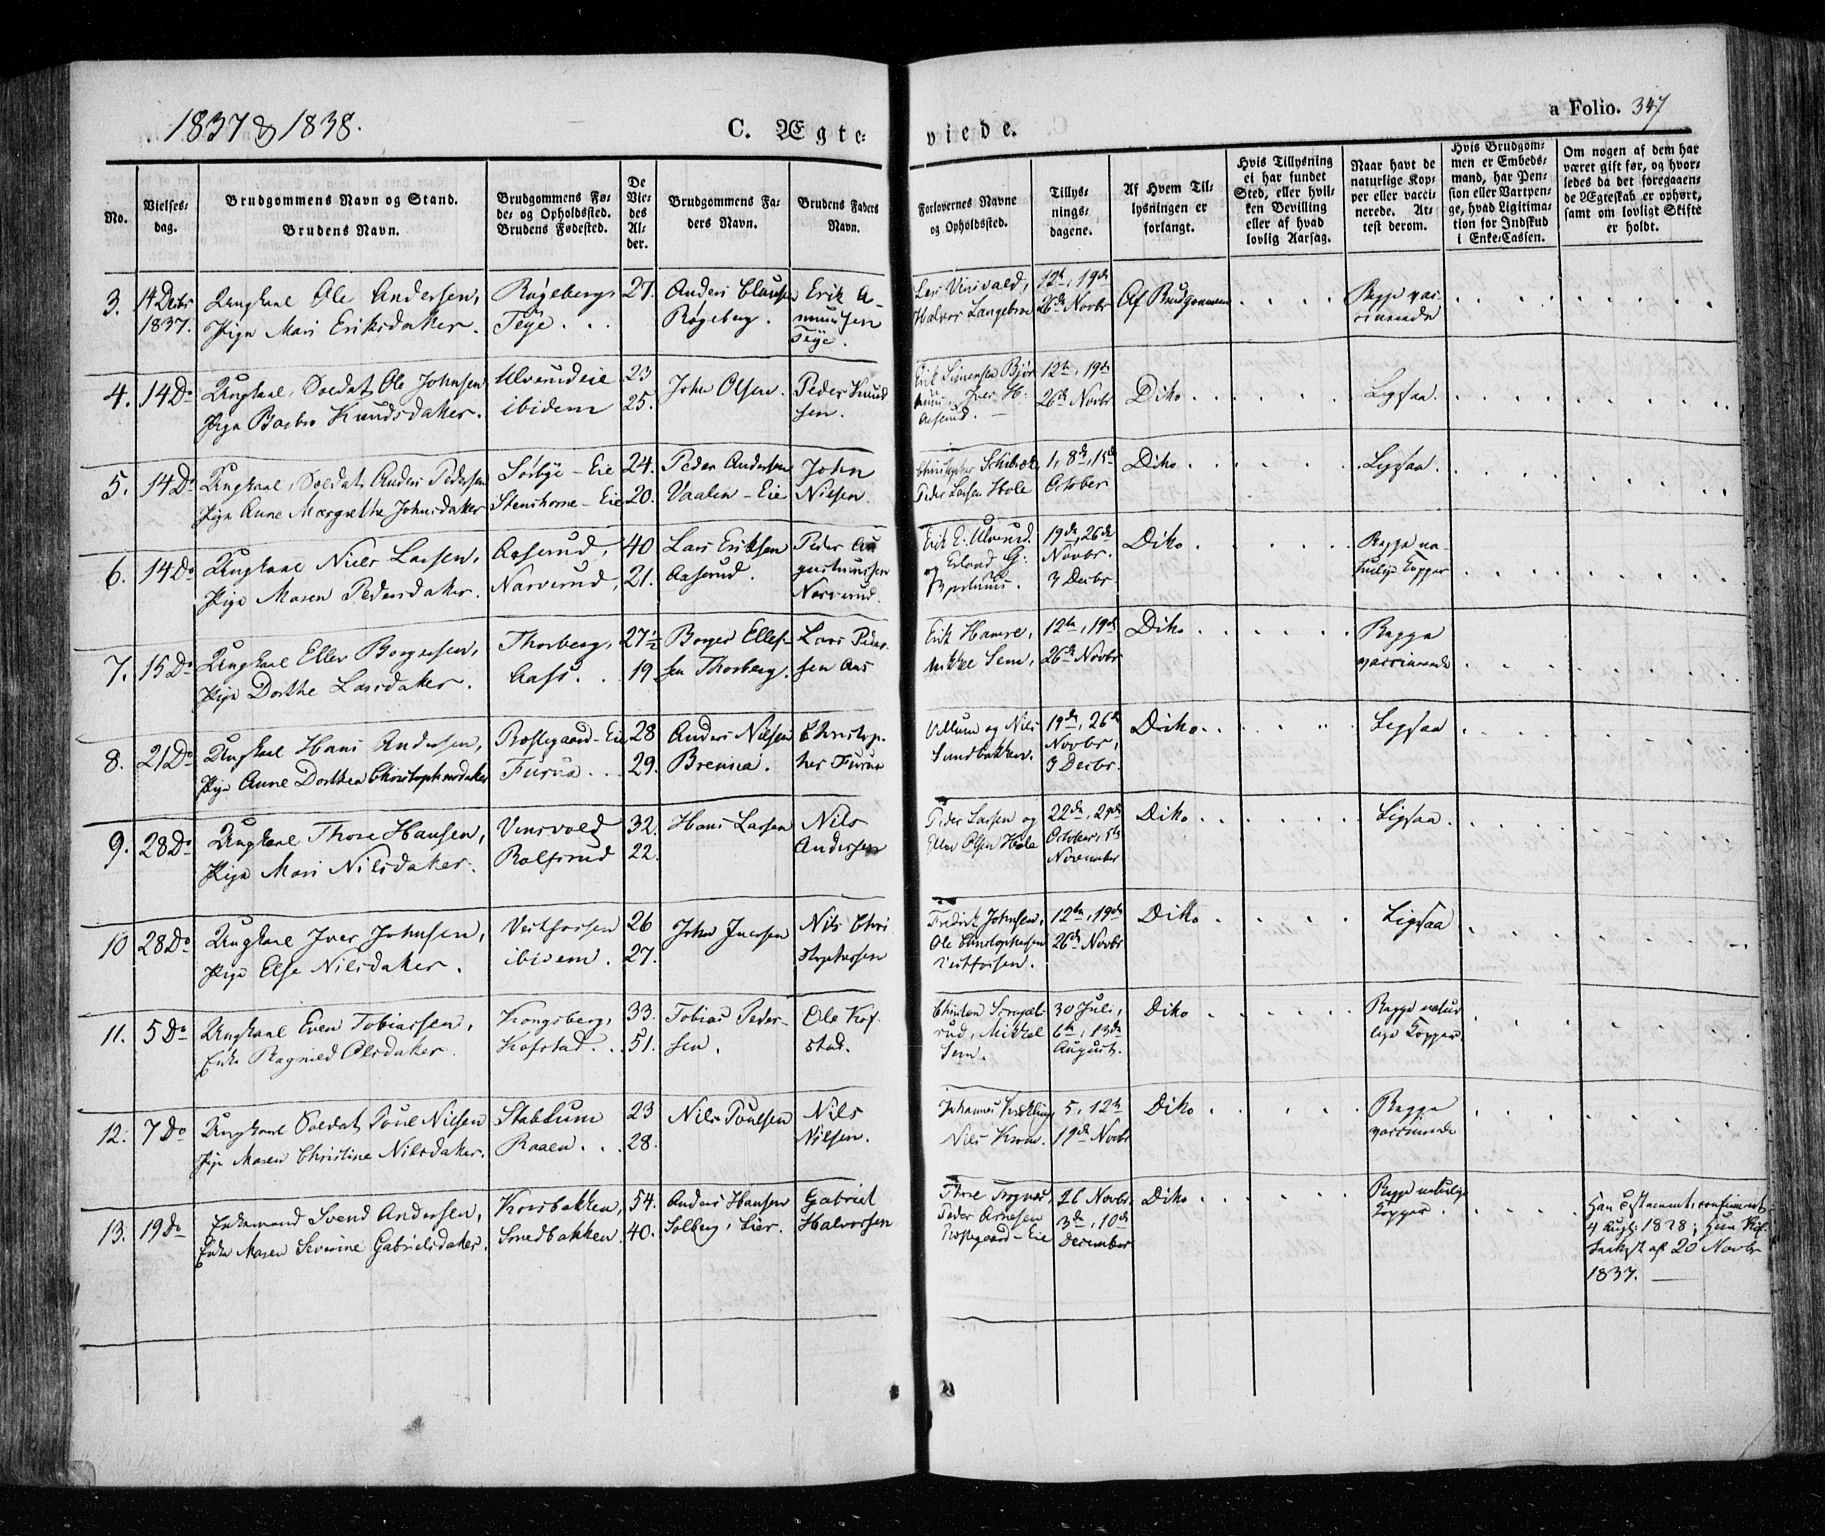 1837 & 1838.
C. Ægte-
viede.
a Folio. 347
No.
Vielses-
dag.
Brudgommens Navn og Stand.
Brudens Navn.
Brudgommens Fø-
de- og Opholdssted.
Brudens Fødested.
De
Vie-
des
Al-
der.
Brudgommens Fa-
ders Navn.
Brudens Faders
Navn.
Forlovernes Navne
og Opholdssted.
Tillys-
nings-
dagene.
Af Hvem Til-
lysningen er
forlangt.
Hvis Tillysning
ei har fundet
Sted, eller hvil-
ken Bevilling
eller af hvad
lovlig Aarsag.
Naar havt de
naturlige Kop-
per eller vacci-
nerede. At-
test derom.
Hvis Brudgom-
men er Embeds-
mand, har Pen-
sion eller Vartpen-
ge, hvad Legitima-
tion for Indskud
i Enke-Cassen.
Om nogen af dem har
været gift før, og hvor-
ledes da det foregaaen-
de Ægteskab er ophørt,
samt om lovligt Skifte
er holdt.
3. 14 Decbr 1837.
Ungkarl Ole Andersen,
Pige Mari Eriksdatter.
Røgeberg,
Teye
27.
Anders Clausen
Røgeberg.
Erik A-
mundsen
Teye.
Halvor Langebroe
12te, 19de
26de Novbr
Af Brudgommen
Begge vac-
cinerede
4. 14 Do
Ungkarl, Soldat Ole Johnsen
Pige Barbro Knudsdatter.
Ulverudeie
ibidem
23
25.
John Olsen.
Peder Knud
sen.
Erik Simensen
Iver H.
Aaserud.
12te, 19de
26de Novbr
Ditto
Ligesaa.
5. 14 Do
Ungkarl, Soldat Anders Pedersen
Pige Anne Margrethe Johnsdatter
Sørbye-Eie
Stenshorne-Eie
24.
20.
Peder Andersen
Vaalen-Eie
John
Nielsen.
Peder Larsen Hole
1, 8de, 15de
October
Ditto
Ligesaa.
6. 14 Do
Ungkarl Niels Larsen,
Pige Maren Pedersdatter.
Aaserud,
Narverud,
40
21.
Lars Eriksen
Aaserud.
Peder Au
gustinussen
Narverud.
Erik E. Ulverud
og Erland G.
19de, 26de
Novbr.
3 Decbr
Ditto
Begge na-
turlige Kopper
7. 15 Do
Ungkarl Ellev Borgersen,
Pige Dorthe Larsdatter.
Thorberg,
Aass.
27½
19
Borger Ellef-
sen Thorberg.
Lars Peder-
sen Aas
Erik Hamre,
Mikkel Sem,
12te, 19de
26de Novbr
Ditto
Begge
vaccinerede
8. 21 Do
Ungkarl Hans Andersen,
Pige Anne Dorthea Christophersdatter
Røstegaard-Eie
Furua
28
29.
Anders Nielsen
Brenna.
Christop-
her Furua
Villum og Nils
Sandbakken.
19de, 26de
Novbr,
3 Decbr.
Ditto
Ligesaa
9. 28 Do
Ungkarl Thore Hansen,
Pige Mari Nilsdatter.
Vinsvold
Rolfsrud
32.
22.
Hans Larsen
Nils
Andersen
Peder Larsen og
Ellev Olsen Hole
22de, 29de
October, 5te
November
Ditto
Ligesaa.
10 28 Do
Ungkarl Iver Johnsen,
Pige Else Nilsdatter.
Vestfossen
ibidem.
26
27.
John Iversen
Nils Chri
stophersen
Fredrik Johnsen,
Ole Christophersen
Vestfossen.
12te, 19de
26de Novbr
Ditto
Ligesaa
11. 5 Do
Ungkarl Even Tobiassen,
Enke Ragnild Olsdatter.
Kongsberg,
Kofstad.
33.
51.
Tobias Peder-
sen.
Ole Kof-
stad.
Mikkel
Sem.
30 Juli,
6te, 13de
August.
Ditto
Begge natur
lige Kopper
12. 7 Do
Ungkarl Soldat Poul Nielsen
Pige Maren Christine Nilsdatter.
Stablum
Raaen
23
28.
Niels Poulsen
Nils
Nilsen.
Johannes
Nils Krom.
5, 12te
19de Novbr
Ditto
Begge
vaccinerede
13. 19 Do
Enkemand Svend Andersen,
Enke Maren Severine Gabrielsdatter.
Korsbakken,
Smedbakken
54.
40.
Anders Hansen
Solberg i Lier.
Gabriel
Halvorsen
Thore
Peder Arnesen
Røstegaard-Eie
26 Novbr
3de, 10de
December
Ditto
Begge naturlige
Kopper.
Han Testament confirmeret
4 Aug. 1828; Hun Skif-
teattest af 20 Novbr
1837.